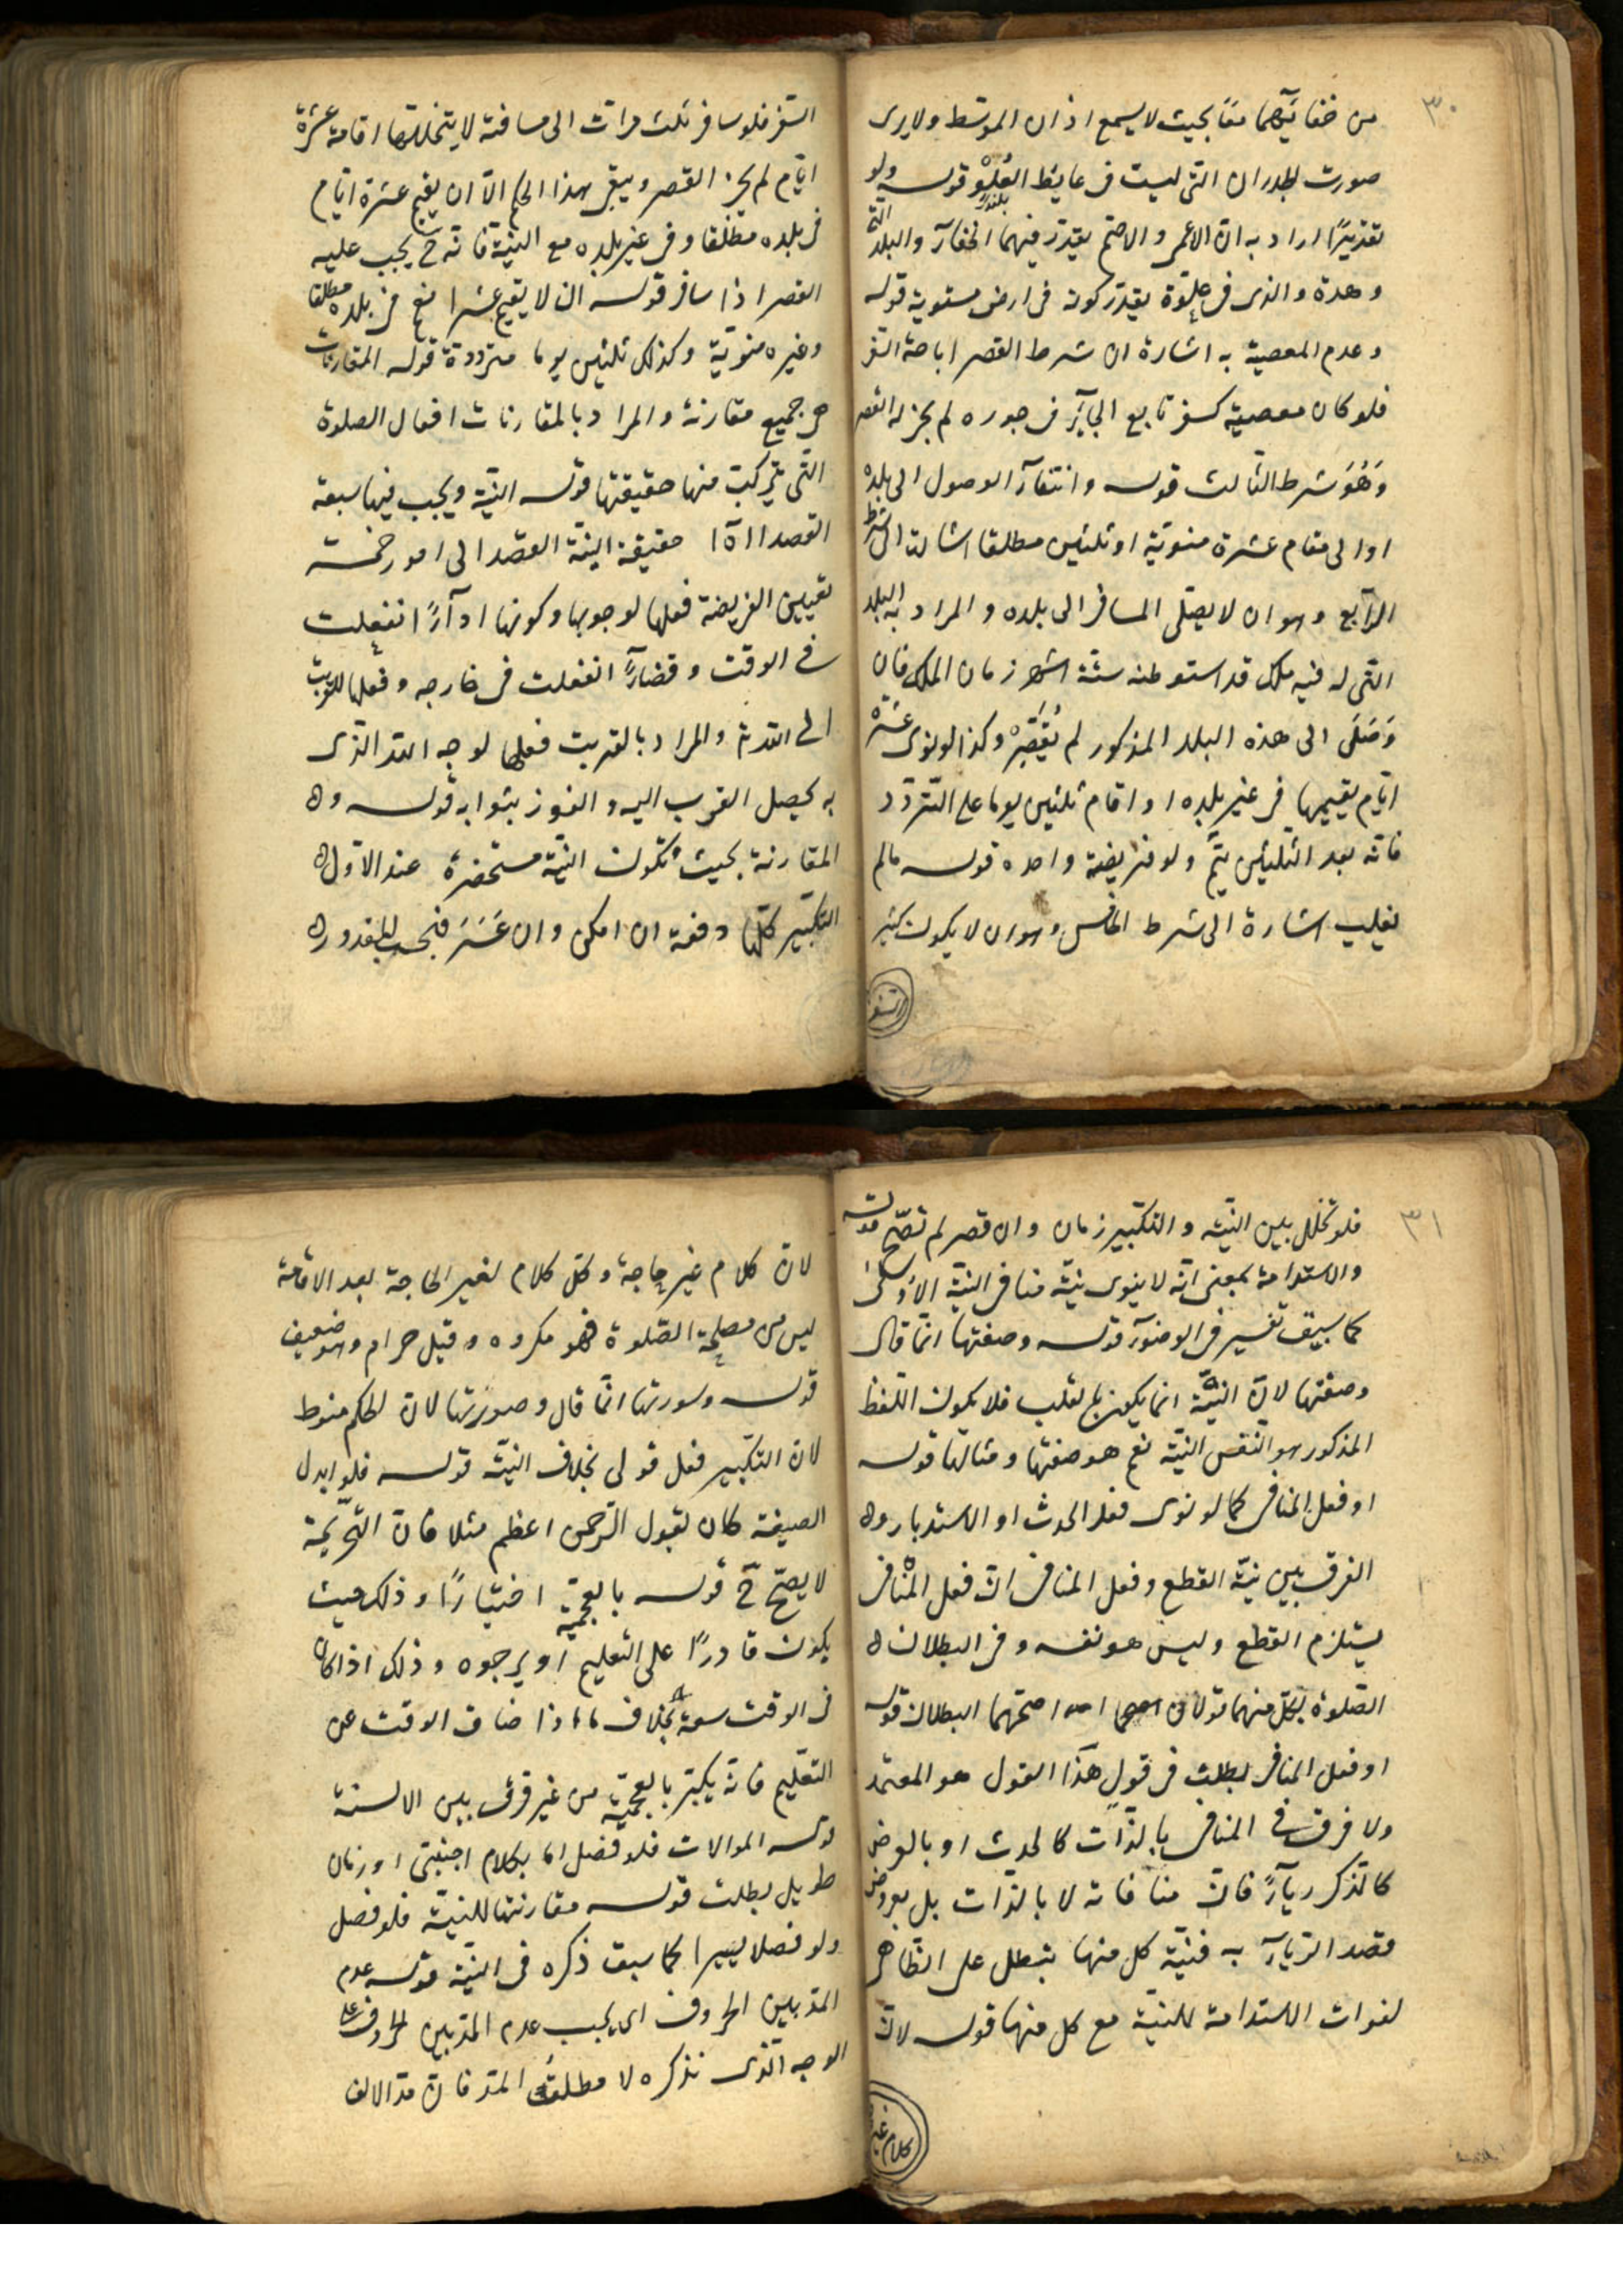 ٣٠
من خفائهما معًا بحيث لا يسمع اذان المتوسط ولا يرى
صورت الجدران التى ليست فى غايط العُلوْ قوله ولو
تقديرًا اراد به ان الاعمى والاصم يقدر فيهما الخفآء والبلد التى
وهدة والذى فى علوّة يقدّر كونه فى ارض مستوية قوله
وعدم المعصية به اشارة ان شرط القصر اباحة السفر
فلو كان معصية كسفر تابع الجآئر فى جوره لم يجز له القصر
وَهُوَ شرط الثالث قوله وانتفآء الوصول الى بلدهْ
او الى مقام عشرة منويّة او ثلثين مطلقا اشارت الى شرط
الرآبع وهو ان لا يصل المسافر الى بلده والمراد به البلد
التى له فيه ملك قد استوطنه ستّة اشهر زمان الملك فان
وَصَلَ الى هذه البلد المذكور لم يُقَصِّرْ وكذا لو نوى عَشَرَة
ايّام يقيمها فى غير بلده او اقام ثلثين يوما على التّردّد
فانّه بعد الثلثين يتمّ ولو فريضة واحده قوله مالم
يغلب اشارة الى شرط الخامس وهو ان لا يكون كثير
السفر
السّفر فلو سافر ثلث مرات الى مسافة لا يتخللها اقامة عشرة
ايّام لم يجز القصر ويبقى هذا الحكم الاّ ان يقيم عشرة ايّام
فى بلده مطلقا وفى غير بلده مع النيّة فانّه ح يجب عليه
القصر اذا سافر قوله ان لا يقيم عشرا نعم فى بلده مطلقا
وغيره منويّة وكذلك ثلثين يوما متردّدة قوله المقارنات
هى جميع مقارنة والمراد بالمقارنات افعال الصلوة
التّى يتركب منها حقيقتها قوله النيّة ويجب فيها سبعة
القصد الاه حقيقة النيّة القصد الى امور خمسة
تعيين الفريضة فعلها لوجوبها وكونها ادآءً ان فعلت
فى الوقت وقضآءً ان فعلت فى خارجه وفعلها للقربت
الى الله والمراد بالقربت فعلها لوجه الله الذى
به يحصل القرب اليه والفوز بثوابه قوله وه
المقارنة بحيث تكون النيّة مستحضرة عند الاول ه
التكبير كلّها دفعة ان امكن وان عَسَرَ فبحسب المقدور ه
٣١
فلو تخلل بين النيّه والتكبير زمان وان قصر لم تصحّ قوله
والاستدامة بمعنى انّه لا ينوى نيّة منافى النيّة الاولى
كما سبق تفسير فى الوضوء قوله وصفتها انّما قال
وصفتها لانّ النيّة انما يكون بالقلب فلا يكون اللفظ
المذكور هو النفس النيّة نعم هو صفتها ومثالها قوله
او فعل المنافى كما لو نوى فعل الحدث او الاستدبار وه
الفرق بين نيّة القطع وفعل المنافى انّ فعل المنافى
يستلزم القطع وليس هو نفسه وفى البطلان ه
الصّلوة بكل منهما قولان اصحهما البطلان قوله
او فعل المنافى بطلت فى قولٍ هذا القول هو المعتمد
ولا فرق فى المنافى بالذّات كالحدث او بالعرض
كالذكر ريآءً فانّ منافاته لا بالذّات بل بعروض
قصد الريآء به فنيّة كل منها تبطل على الظاهر
لفوات الاستدامة للنيّة مع كل منها قوله لانّ
كلام غير
لانّ كلام غير حاجة وكلّ كلام لغير الحاجة بعد الاقامة
ليس من مصلحة الصّلوة فهو مكروه وقيل حرام وهو ضعيف
قوله وسورتها انّما قال وصورتها لانّ الحكم منوط
لانّ التكبير فعل قولى بخلاف النيّة قوله فلو ابدل
الصيغة كان يقول الرّحمن اعظم مثلا فانّ التحريمة
لا يصحّ ح قوله بالعجميّة اختيارًا وذلك حيث
يكون قادرًا على التعليم او يرجوه وذلك اذا كان
فى الوقت سعة بخلاف ما اذا ضاق الوقت عن
التعليم فانّه يكبّر بالعجميّة من غير فرق بين الالسنة
قوله الموالات فلو فصل اما بكلام اجنبىّ او زمان
طويل بطلت قوله مقارنتها للنيّة فلو فصل
ولو فصلا يسيرا كما سبق ذكره فى النيّة قوله عدم
المدّ بين الحروف اى يجب عدم المدّ بين الحروف على
الوجه الّذى نذكره لا مطلق المدّ فانّ مدّ الالف